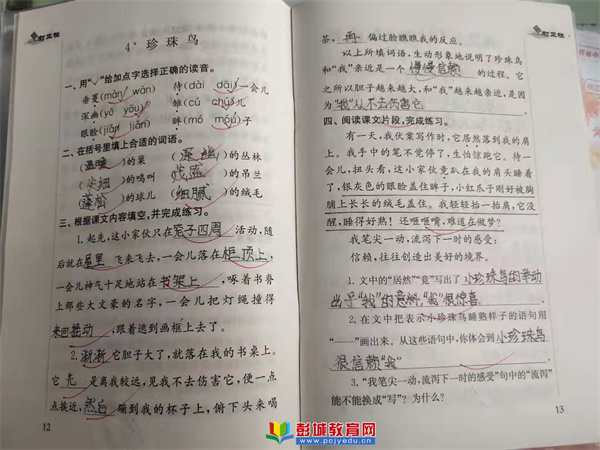 4* 珍珠鸟
一、用“√”给加点字选择正确的读音。
蔓(màn wàn) 待(dài dāi)一会儿
深幽(yō yōu) 雏(cú chú)儿
眼睑(jiǎn liǎn) 眸(mó móu)子
二、在括号里填上合适的词语。
(温暖)的巢 (深幽)的丛林
(尖细)的鸣叫 ()的吊兰
(蓬松)的球儿 (细腻)的绒毛
三、根据课文内容填空,并完成练习。
1. 起先,这小家伙只在笼子四周活动,随
后就在屋里飞来飞去,一会儿落在柜顶上,
一会儿神气十足地站在书架上,啄着书脊
上那些大文豪的名字,一会儿把灯绳撞得
来回摇动,跟着逃到画框上去了。
2. 渐渐它胆子大了,就落在我的书桌上。
它先是离我较远,见我不去伤害它,便一点
点挨近,然后蹦到我的杯子上,俯下头来喝
12
茶,再偏过脸瞧瞧我的反应。
以上所填词语,生动形象地说明了珍珠鸟
和“我”亲近是一个慢慢信赖的过程。它
之所以胆子越来越大,和“我”越来越亲近,是因
为“我”从不去伤害它。
四、阅读课文片段,完成练习。
有一天,我伏案写作时,它居然落到我的肩
上。我手中的笔不觉停了,生怕惊跑它。待一
会儿,扭头看,这小家伙竟趴在我的肩头睡着
了,银灰色的眼睑盖住眸子,小红爪子刚好被胸
脯上长长的绒毛盖住。我轻轻抬一抬肩,它没
醒,睡得好熟!还咂咂嘴,难道在做梦?
我笔尖一动,流泻下一时的感受:
信赖,往往创造出美好的境界。
1. 文中的“居然”“竟”写出了小珍珠鸟的举动
出乎“我”的意料,“我”很惊喜。
2. 在文中把表示小珍珠鸟睡熟样子的语句用
“——”画出来。从这些语句中,你体会到小珍珠鸟
很信赖“我”
3. “我笔尖一动,流泻下一时的感受”句中的“流泻”
能不能换成“写”?为什么?
13
彭城教育网
www.pcjyedu.cn